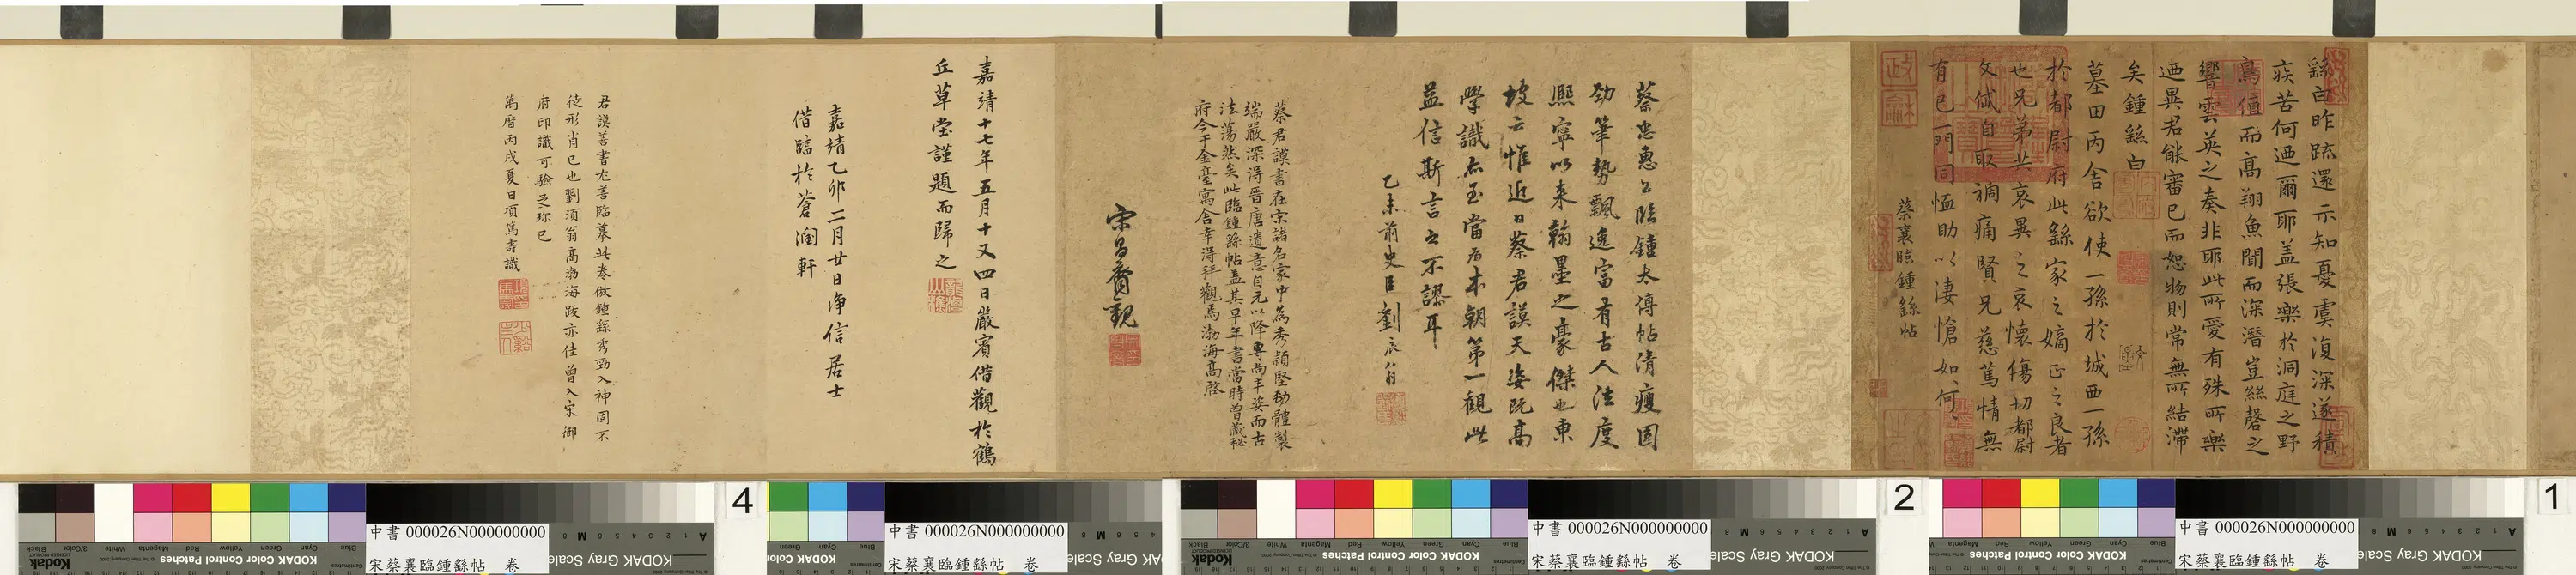 繇白昨疏還示知憂虞復深遂積
疾苦何迺爾耶盖張樂於洞庭之野
鳥值而高翔魚聞而深潛豈絲磬之
響雲英之奏非耶此所愛有殊所樂
迺異君能審已而恕物則常無所結滯
矣鍾繇白
墓田丙舍欲使一孫於城西一孫
於都尉府此繇家之嫡正之良者
也兄弟共哀異之哀懷傷切都尉
文岱自取禍痛賢兄慈篤情無
有已一門同恤助以悽愴如何
蔡襄臨鍾繇帖
蔡忠惠公臨鍾太傅帖清瘦圓
勁筆勢飄逸富有古人法度
熙寧以來翰墨之豪傑也東
坡云惟近日蔡君謨天姿既高
學識亦至當為本朝第一觀此
益信斯言之不謬耳
乙未前史臣劉辰翁
蔡君謨書在宋諸名家中為秀穎堅勁體製
端嚴深得晉唐遺意自元以降專尚丰姿而古
法蕩然矣此臨鍾繇帖盖其早年書當時曾藏秘
府今于金臺寓舍幸得拜觀焉渤海高啓
宋昌裔觀
嘉靖十七年五月十又四日嚴賓借觀於鶴
丘草堂謹題而歸之
嘉靖乙卯二月廿日淨信居士
借臨於蒼潤軒
君謨善書尤善臨摹此卷倣鍾繇秀勁入神固不
徒形肖已也劉須翁高渤海跋亦佳曾入宋御
府印識可驗足珍已
萬曆丙戌夏日項篤壽識
4
2
1
中書 000026N000000000
宋蔡襄臨鍾繇帖 卷
中書 000026N000000000
宋蔡襄臨鍾繇帖 卷
中書 000026N000000000
宋蔡襄臨鍾繇帖 卷
中書 000026N000000000
宋蔡襄臨鍾繇帖 卷
KODAK Color Control Patches
KODAK Gray Scale